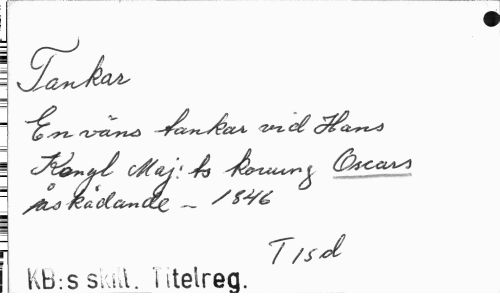 Tankar
En väns tankar vid Hans
Kongl Maj:ts konung Oscars
åskådande – 1846
T 1sd
KB:s skill. Titelreg.